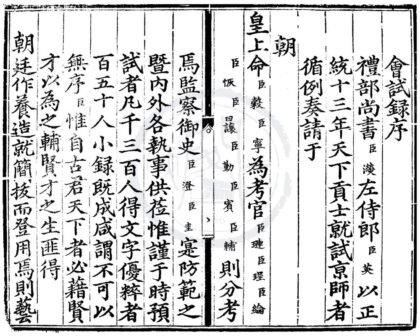 會試錄序
禮部尚書臣濙左侍郎臣英以正
統十三年天下貢士就試京師者
循例奏請于
朝
皇上命臣縠臣寧為考官臣璉臣瑆臣綸
臣恢臣讓臣勤臣賓臣輔則分考
焉監察御史臣澄臣圭寔防範之
暨內外各執事供莅惟謹于時預
試者凡千三百人得文字優粹者
百五十人小錄既成咸謂不可以
無序臣惟自古君天下者必藉賢
才以為之輔賢才之生匪得
朝廷作養造就簡拔而登用焉則藝